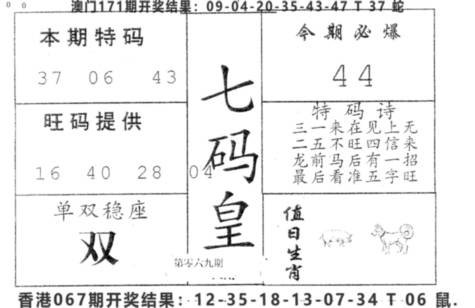 澳门171期开奖结果：09-04-20-35-43-47 T 37 蛇
本期特码
37 06 43
旺码提供
16 40 28 04
单双稳座
双
七码皇
第零六九期
今期必爆
44
特码诗
三一来在见上无
二五不旺四信来
龙前马后有一招
最后看准五字旺
值日生肖
香港067期开奖结果：12-35-18-13-07-34 T 06 鼠.